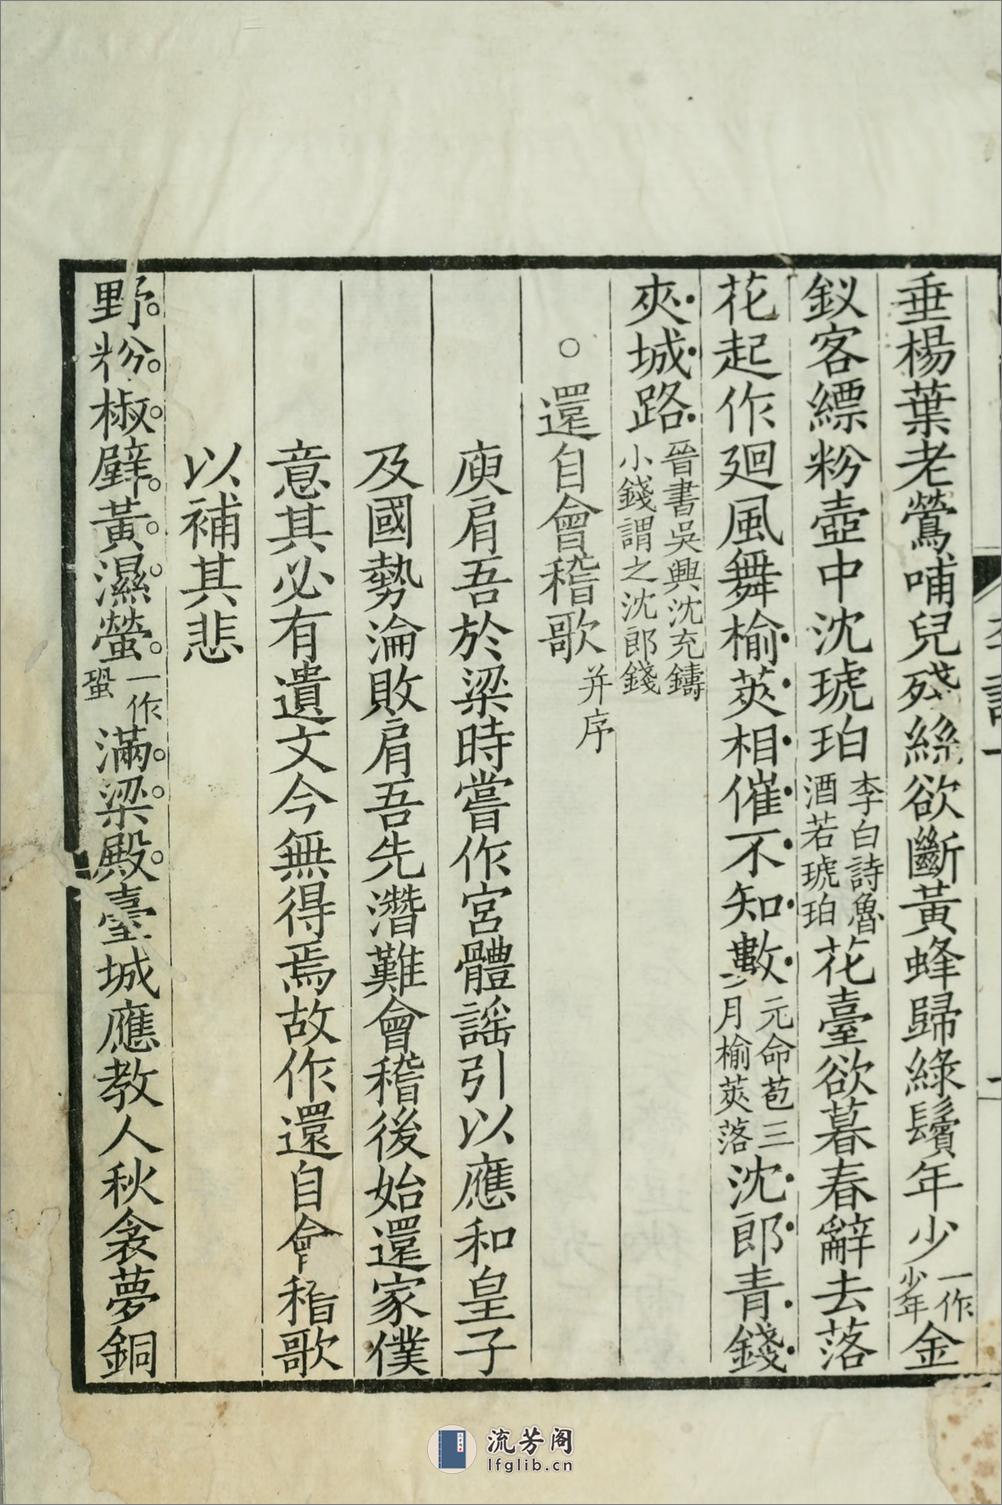 垂楊葉老鶯哺兒殘絲欲斷黃蜂歸綠鬢年少一作少年金
釵客縹粉壺中沈琥珀李白詩魯酒若琥珀花臺欲暮春辭去落
花起作廻風舞榆莢相催不知數元命苞三月榆莢落沈郎青錢
夾城路晉書吳興沈充鑄小錢謂之沈郎錢
○還自會稽歌并序
庾肩吾於梁時嘗作宮體謠引以應和皇子
及國勢淪敗肩吾先潛難會稽後始還家僕
意其必有遺文今無得焉故作還自會稽歌
以補其悲
野粉椒壁黃濕螢一作蛩滿梁殿臺城應教人秋衾夢銅
流芳阁
lfglib.cn